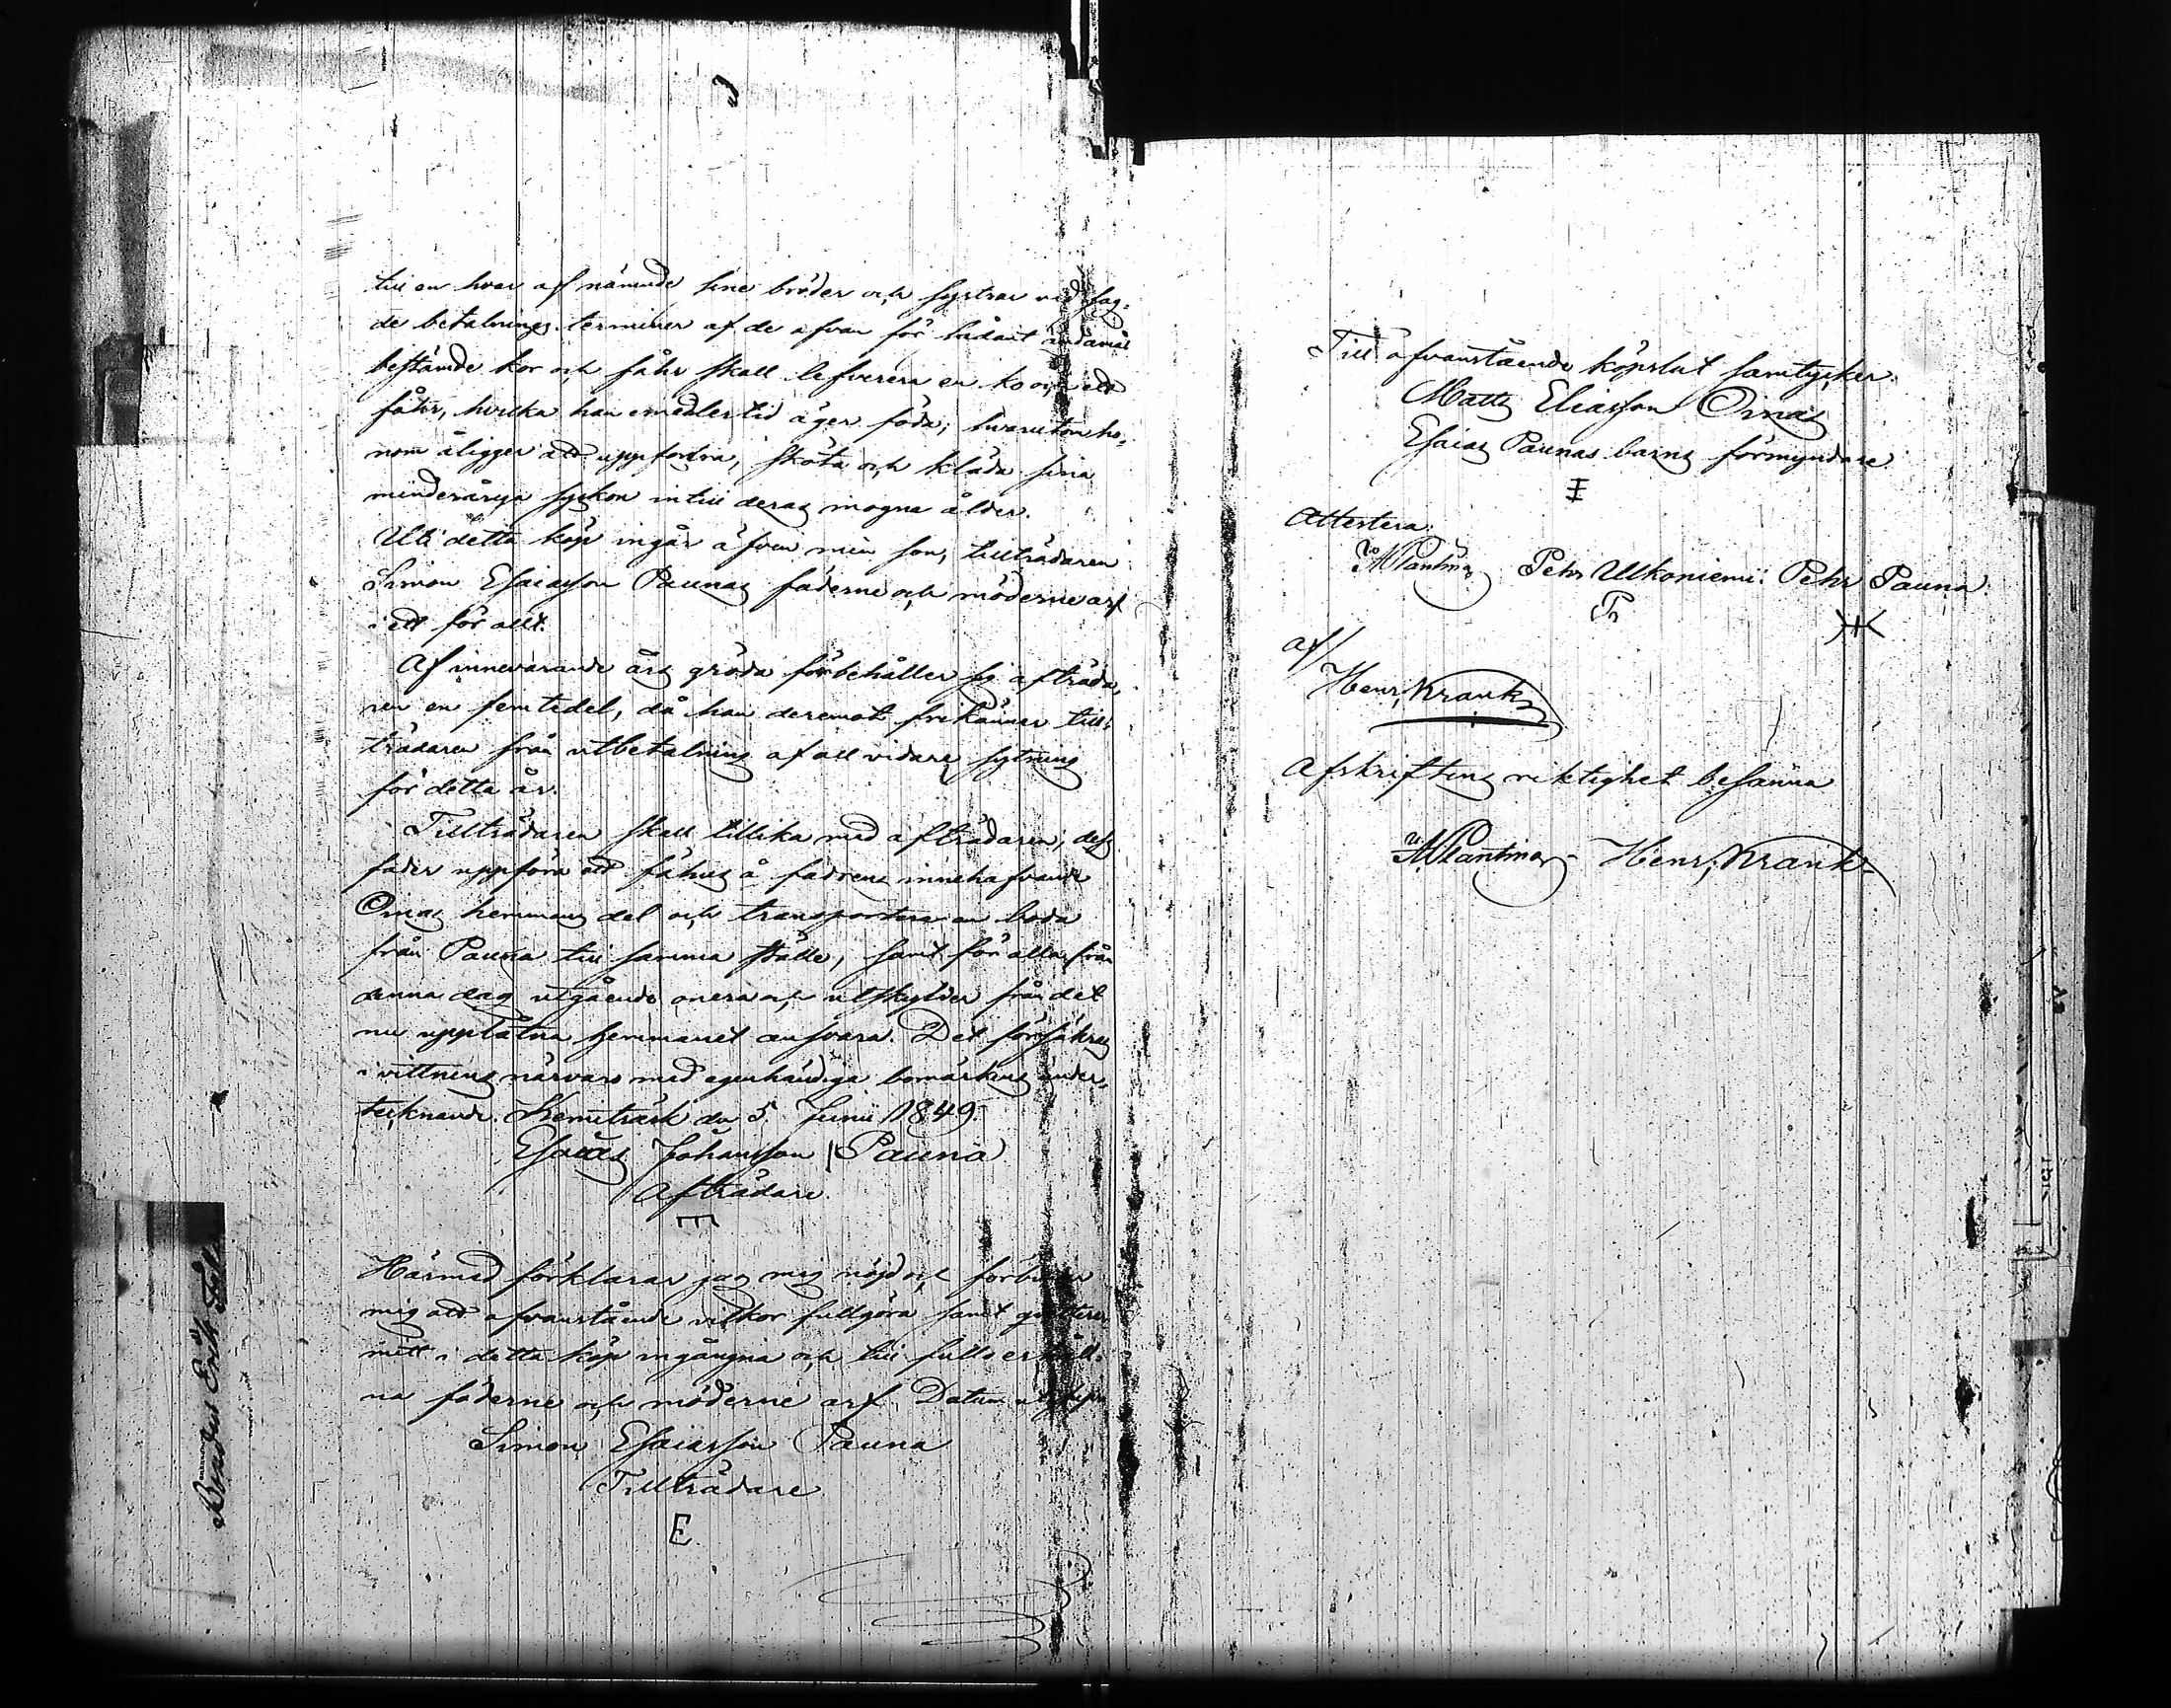 till en hvar af nämnde sine bröder och systrar vid sag-
de betalnings terminer af de ofvan för sådant ändamål
bestämde kor och fåhr skall lefverera en ko och ett
fåhr, hvilka han emedlertid äger föda; hvarutom ho-
nom åligger att uppfostra, sköta och kläda sina
minderåriga syskon intill deras mogna ålder.
Uti detta köp ingår äfven min son, tillträdaren
Simon Esaiasson Paunas fäderne och möderne arf
i ett för allt.
Af innevarande års gröda förbehåller sig afträda-
ren en femtedel, då han deremot frikänner till-
trädaren från utbetalning af all vidare sytning
för detta år.
Tillträdaren skall tillika med afträdaren, dess
fader uppföra ett fähus å fadrens innehafvande
Oinas hemmans del och transportera en boda
från Pauna till samma ställe, samt för alla från
denna dag utgående onera och utskylder från det
nu upplåtna hemmanet ansvara. Det försäkras
i vittnens närvaro med egenhändiga bomärkens under-
tecknande. Kemiträsk den 5 Junii 1849.
Esaias Johansson Pauna
Afträdare.
E
Härmed förklarar jag mig nöjd och förbinder
mig att ofvanstående vilkor fullgöra samt qvitterar
mitt i detta köp ingångna och till fullo erhåll-
na fäderne och möderne arf. Datum ut supra
Simon Esaiasson Pauna
Tillträdare
E
Bonden Erik
Till ofvanstående köpslut samtycker.
Matts Eliasson Oinas
Esaias Paunas barns förmyndare.
Attestera:
M Plantin Pehr Ulkoniemi: Pehr Pauna.
af/
Henr, Krank
Afskriftens riktighet besanna
M Plantin Henr, Krank